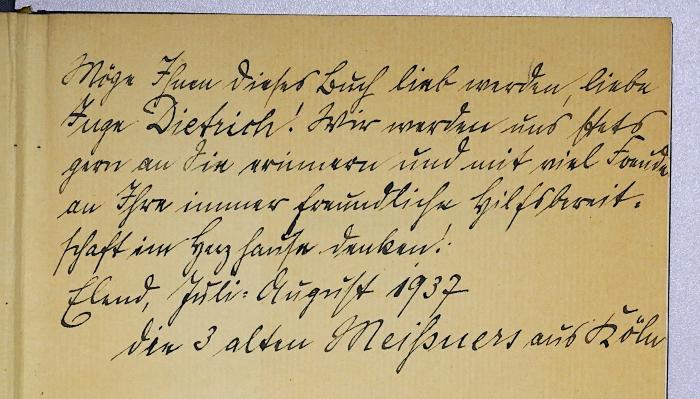 Möge Ihnen dieses Buch lieb werden, liebe
Inge Dietrich! Wir werden uns stets
gern an Sie erinnern und mit viel Freude
an Ihre immer freundliche Hilfsbereit=
schaft im Harzhause denken!
Elend, Juli=August 1937
die 3 alten Meißners aus Köln